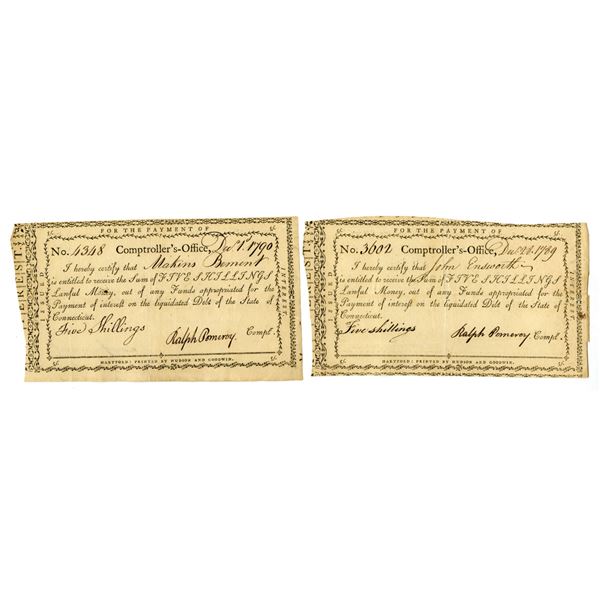 FOR THE PAYMENT OF
No. 4348 Comptroller's-Office, Decr 1. 1790
I hereby certify that Makins Bement
is entitled to receive the Sum of FIVE SHILLINGS
Lawful Money, out of any Funds appropriated for the
Payment of interest on the liquidated Debt of the State of
Connecticut.
Five Shillings
Ralph Pomeroy Compt.
HARTFORD: PRINTED BY HUDSON AND GOODWIN.
INTEREST.
FOR THE PAYMENT OF
No. 3602 Comptroller's-Office, Dec 28 1789
I hereby certify that John Ensworth
is entitled to receive the Sum of FIVE SHILLINGS
Lawful Money, out of any Funds appropriated for the
Payment of interest on the liquidated Debt of the State of
Connecticut.
Five shillings
Ralph Pomeroy Compt.
HARTFORD: PRINTED BY HUDSON AND GOODWIN.
ISSUED
INTEREST.